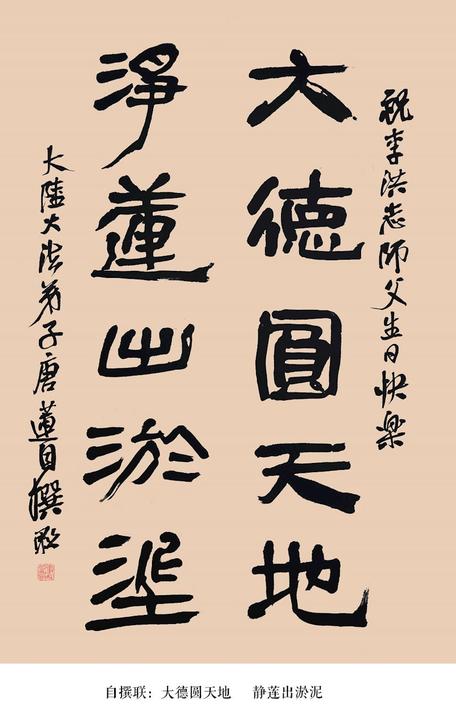 祝李洪志師父生日快樂
大德圓天地
淨蓮出淤埿
大陸大法弟子唐蓮自撰
自撰联：大德圆天地 静莲出淤泥